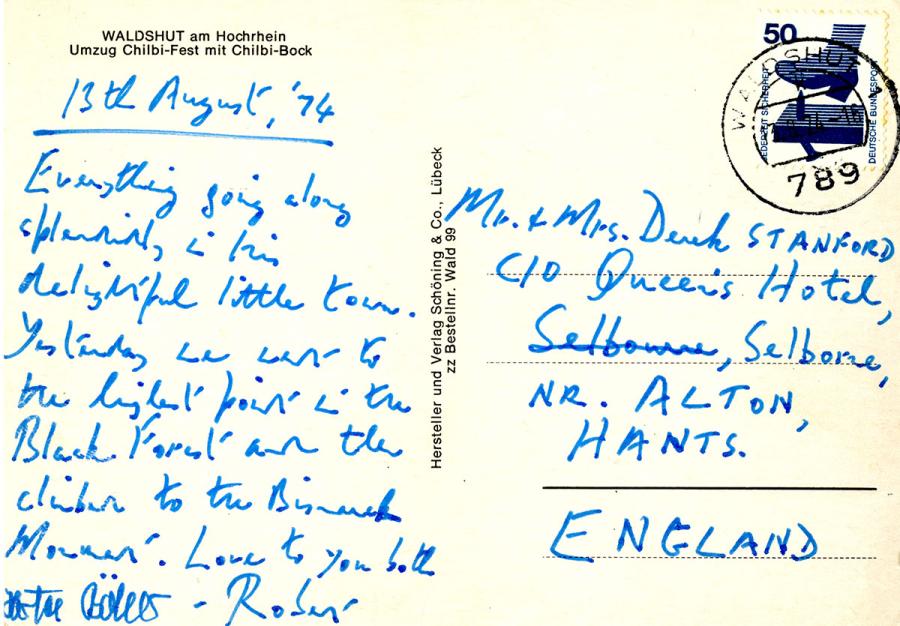 WALDSHUT am Hochrhein
Umzug Chilbi-Fest mit Chilbi-Bock
13th August, '74
Everything going along
splendidly in this
delightful little town.
Yesterday we went to
the highest point in the
Black Forest and the
climbed to the Bismarck
Monument. Love to you both
- Robert
Hersteller und Verlag Schöning & Co., Lübeck
zz Bestellnr. Wald 99
50
JEDERZEIT SICHERHEIT
DEUTSCHE BUNDESPOST
WALDSHUT
789
Mr. & Mrs. Derek STANFORD
C/O Queen's Hotel,
Selbourne, Selborne,
NR. ALTON,
HANTS.
ENGLAND